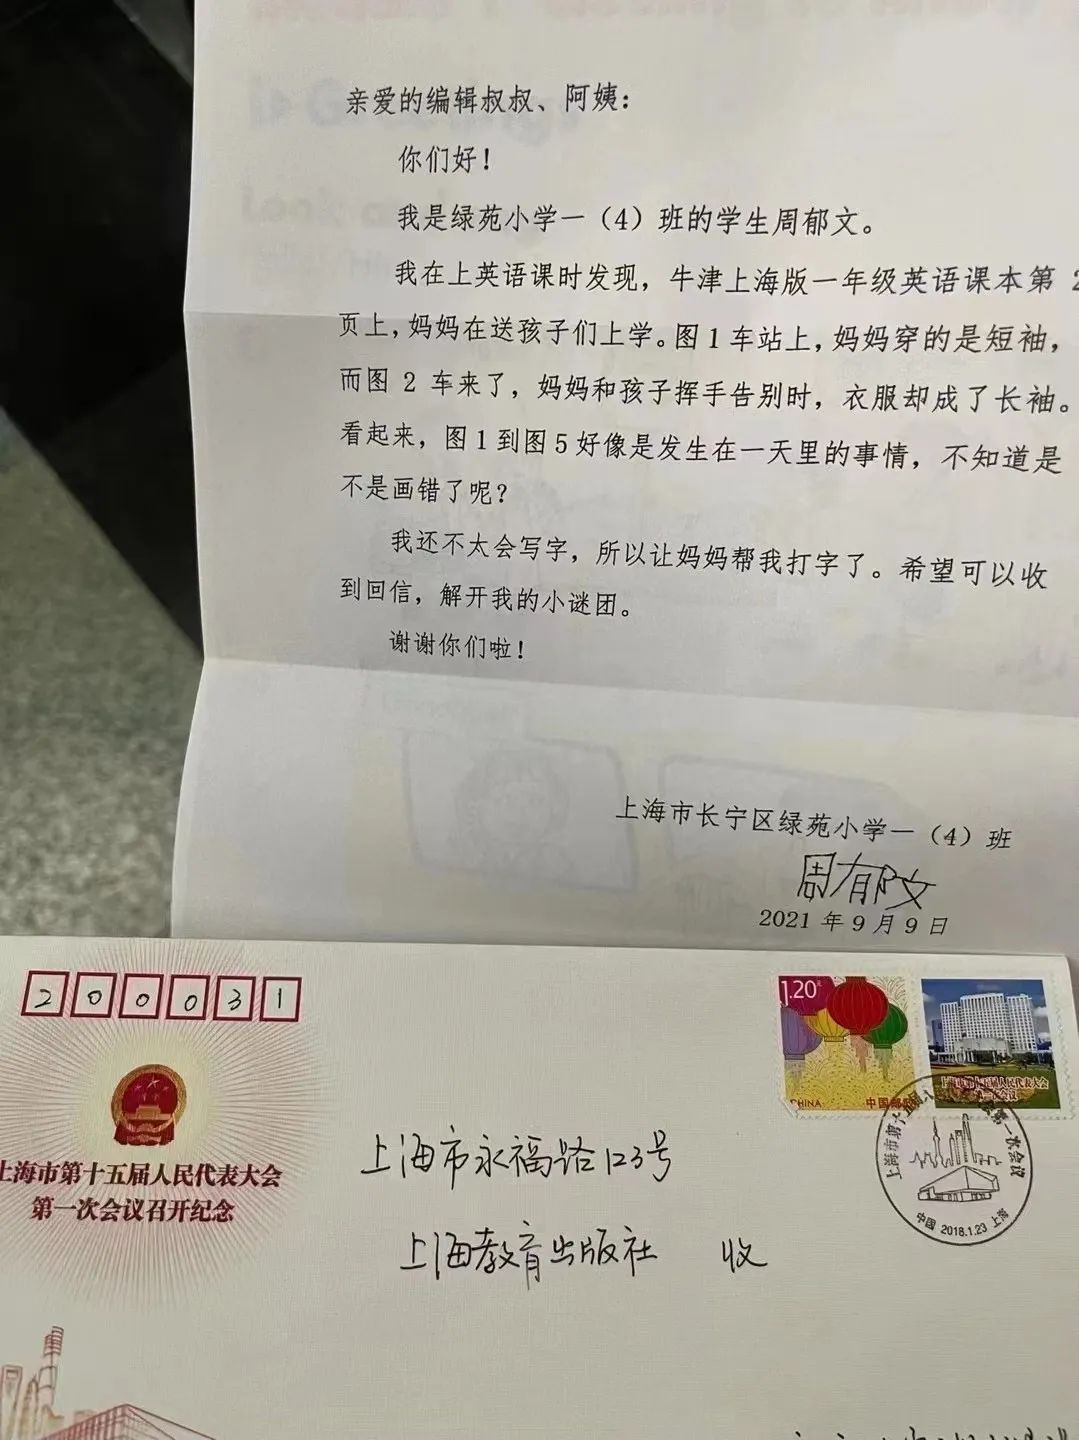 亲爱的编辑叔叔、阿姨：
你们好！
我是绿苑小学一（4）班的学生周郁文。
我在上英语课时发现，牛津上海版一年级英语课本第 2
页上，妈妈在送孩子们上学。图 1 车站上，妈妈穿的是短袖，
而图 2 车来了，妈妈和孩子挥手告别时，衣服却成了长袖。
看起来，图 1 到图 5 好像是发生在一天里的事情，不知道是
不是画错了呢？
我还不太会写字，所以让妈妈帮我打字了。希望可以收
到回信，解开我的小谜团。
谢谢你们啦！
上海市长宁区绿苑小学一（4）班
周郁文
2021 年 9 月 9 日
200031
1.20元
CHINA 中国邮政
上海市第十五届人民代表大会
第一次会议
上海市第十五届人民代表大会第一次会议
中国 2018.1.23 上海
上海市第十五届人民代表大会
第一次会议召开纪念
上海市永福路123号
上海教育出版社 收